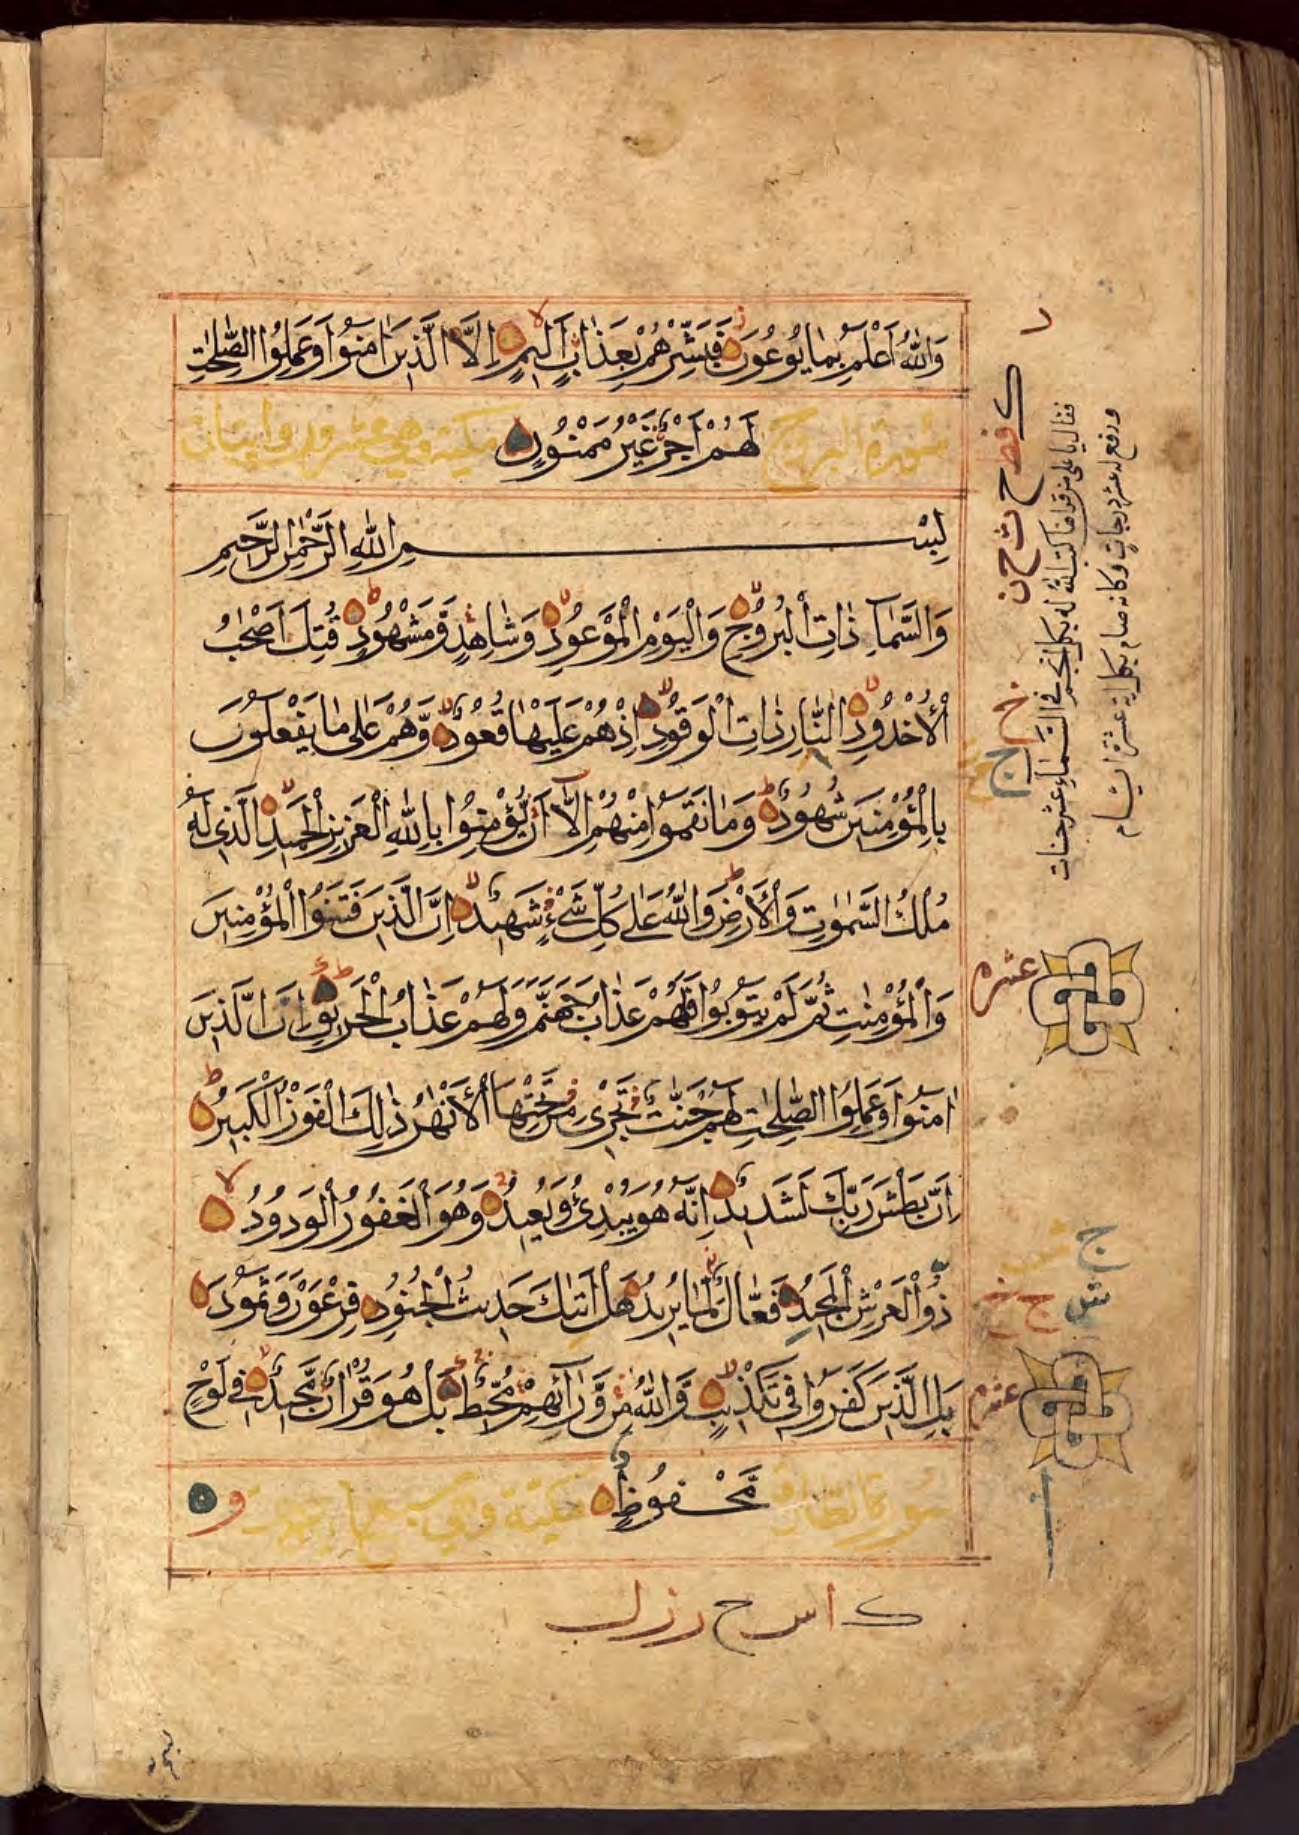 وَاللّٰهُ اَعْلَمُ بِمَا يُوعُونَ فَبَشِّرْهُمْ بِعَذَابٍ اَلِيمٍ اِلَّا الَّذِينَ اٰمَنُوا وَعَمِلُوا الصّٰلِحٰتِ
سورة البروج لَهُمْ اَجْرٌ غَيْرُ مَمْنُونٍ مكية وهي عشرون وايتان
بِسْمِ اللّٰهِ الرَّحْمٰنِ الرَّحِيمِ
وَالسَّمَآءِ ذَاتِ الْبُرُوجِ وَالْيَوْمِ الْمَوْعُودِ وَشَاهِدٍ وَّمَشْهُودٍ قُتِلَ اَصْحٰبُ
الْاُخْدُودِ النَّارِ ذَاتِ الْوَقُودِ اِذْ هُمْ عَلَيْهَا قُعُودٌ وَّهُمْ عَلٰى مَا يَفْعَلُونَ
بِالْمُؤْمِنِينَ شُهُودٌ وَمَا نَقَمُوا مِنْهُمْ اِلَّآ اَنْ يُّؤْمِنُوا بِاللّٰهِ الْعَزِيزِ الْحَمِيدِ الَّذِى لَهُ
مُلْكُ السَّمٰوٰتِ وَالْاَرْضِ وَاللّٰهُ عَلٰى كُلِّ شَىْءٍ شَهِيدٌ اِنَّ الَّذِينَ فَتَنُوا الْمُؤْمِنِينَ
وَالْمُؤْمِنٰتِ ثُمَّ لَمْ يَتُوبُوا فَلَهُمْ عَذَابُ جَهَنَّمَ وَلَهُمْ عَذَابُ الْحَرِيقِ اِنَّ الَّذِينَ
اٰمَنُوا وَعَمِلُوا الصّٰلِحٰتِ لَهُمْ جَنّٰتٌ تَجْرِى مِنْ تَحْتِهَا الْاَنْهٰرُ ذٰلِكَ الْفَوْزُ الْكَبِيرُ
اِنَّ بَطْشَ رَبِّكَ لَشَدِيدٌ اِنَّهُ هُوَ يُبْدِئُ وَيُعِيدُ وَهُوَ الْغَفُورُ الْوَدُودُ
ذُو الْعَرْشِ الْمَجِيدُ فَعَّالٌ لِّمَا يُرِيدُ هَلْ اَتٰىكَ حَدِيثُ الْجُنُودِ فِرْعَوْنَ وَثَمُودَ
بَلِ الَّذِينَ كَفَرُوا فِى تَكْذِيبٍ وَّاللّٰهُ مِنْ وَّرَآئِهِمْ مُّحِيطٌ بَلْ هُوَ قُرْاٰنٌ مَّجِيدٌ فِى لَوْحٍ
سورة الطارق مَّحْفُوظٍ مكية وهي سبع
عشره
عشره